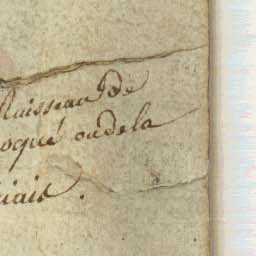 Ruisseau de
oqué ou de la
iais.